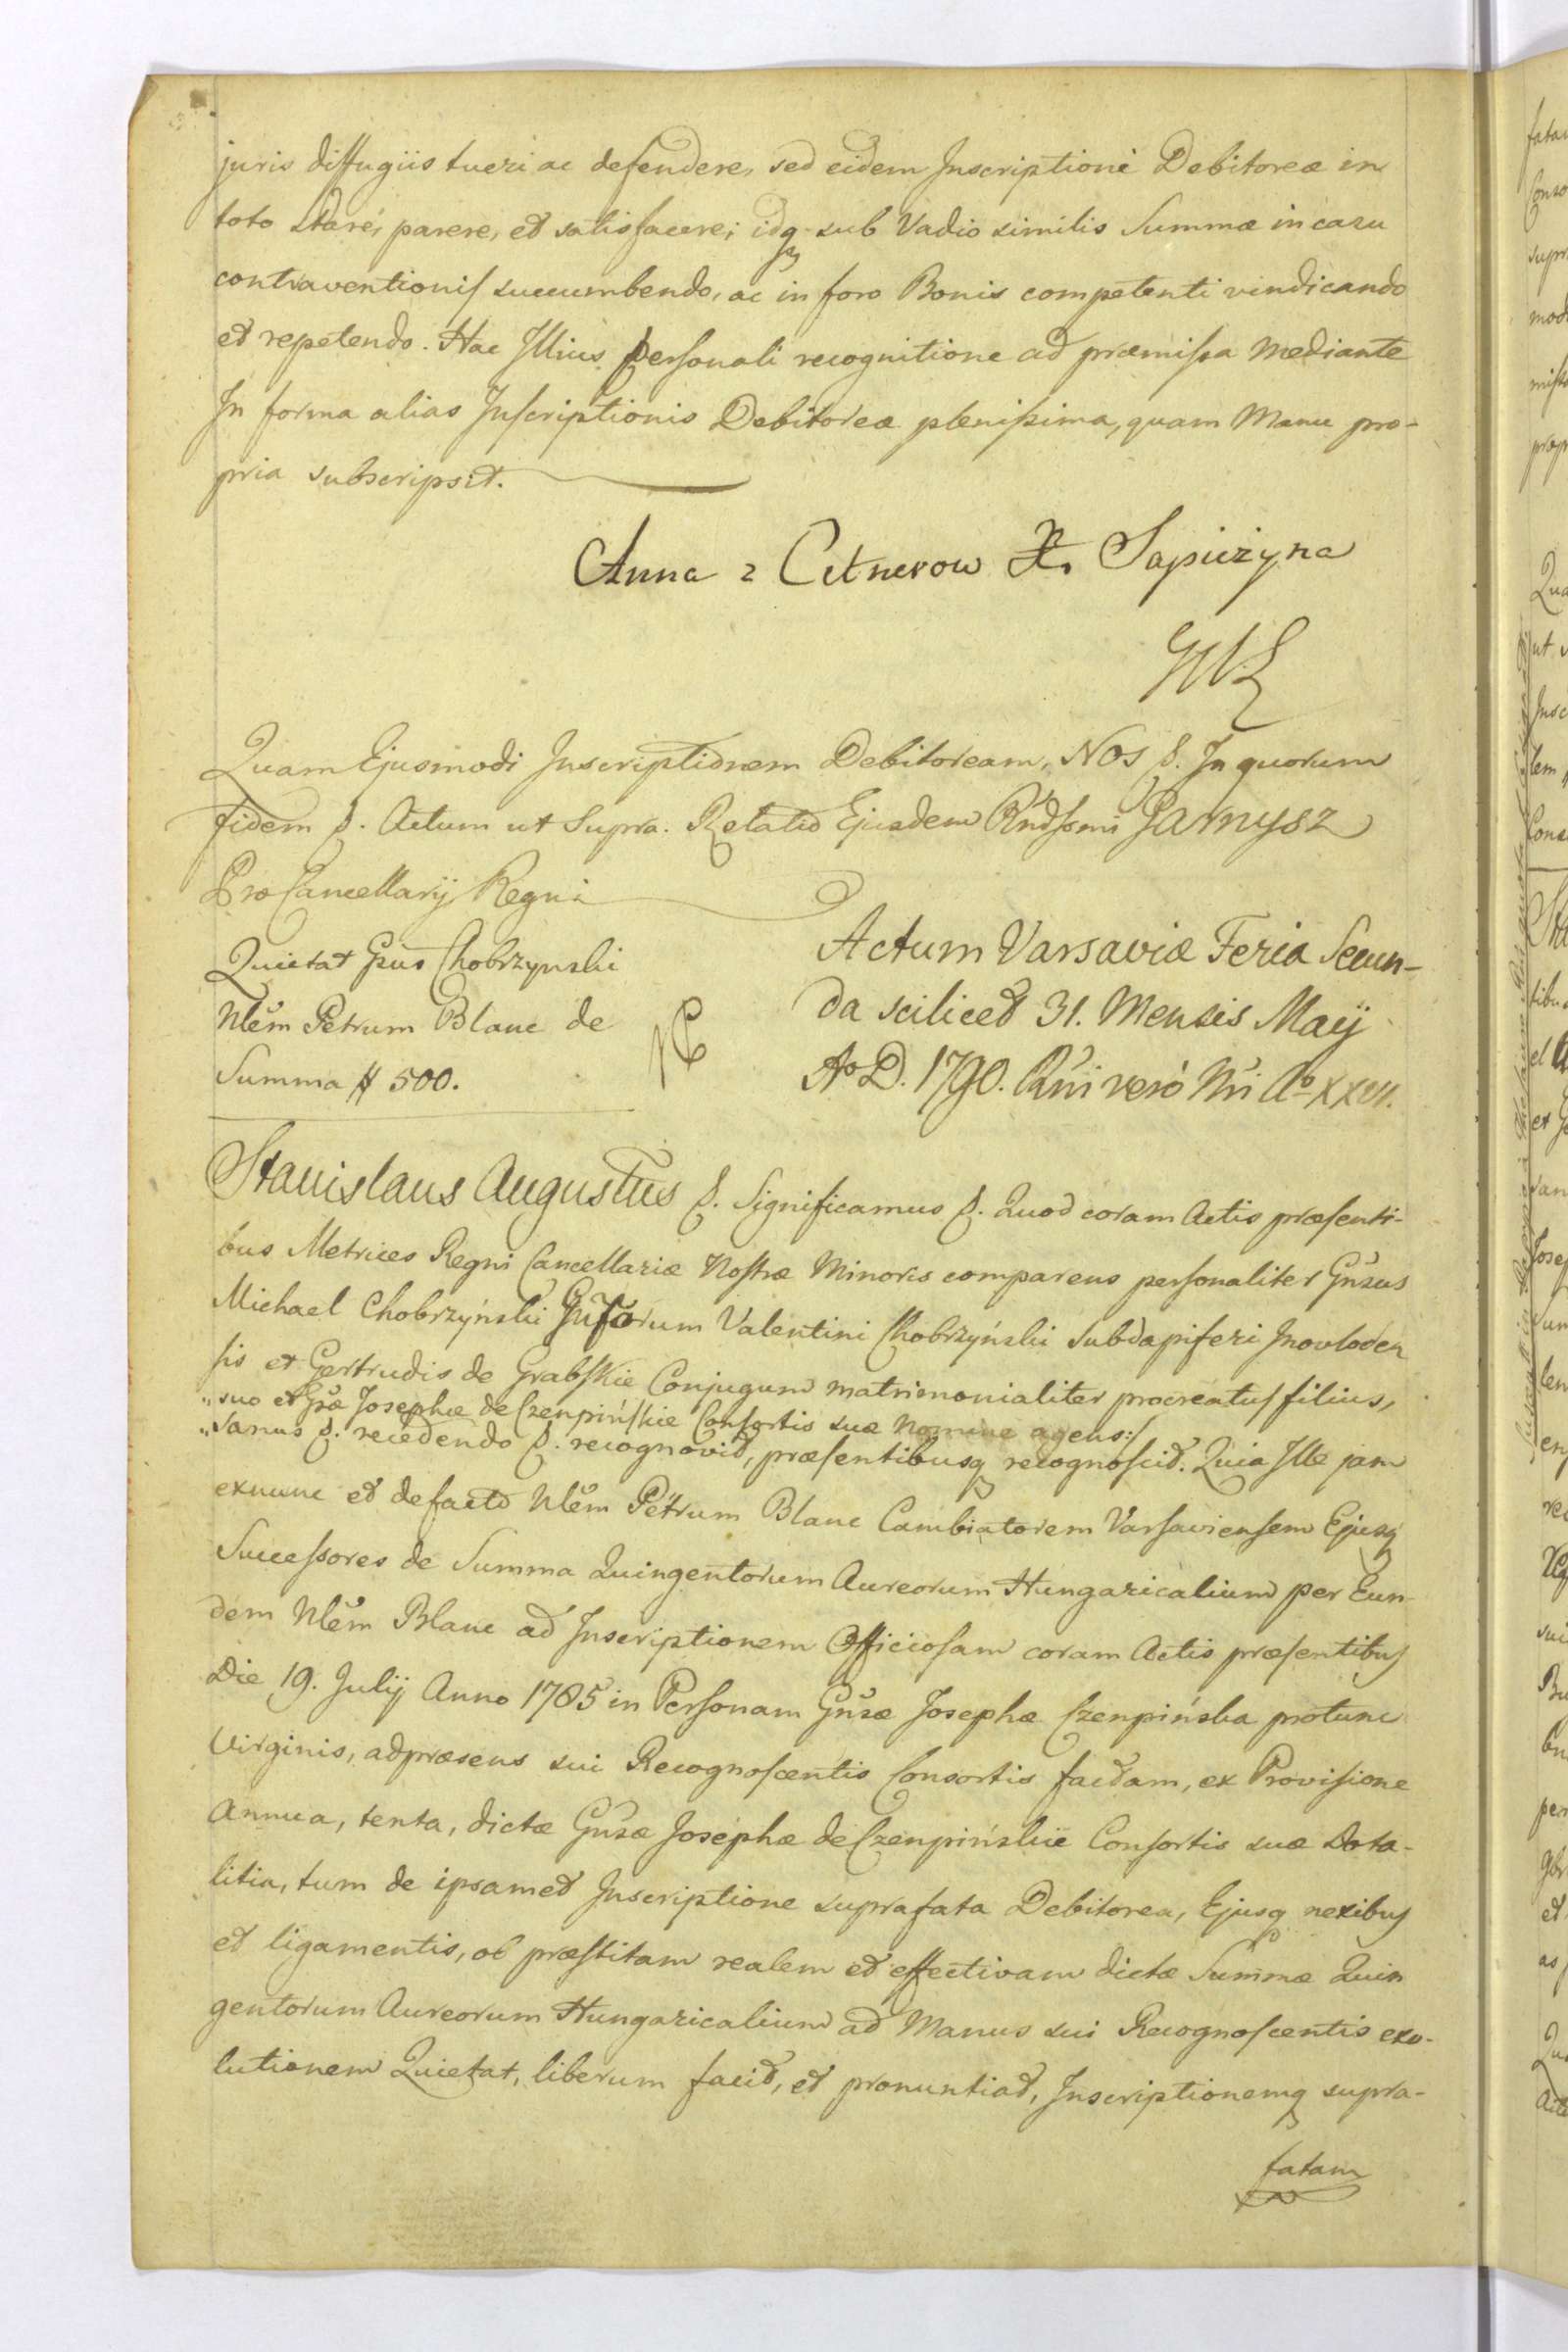 juris diffugiis tueri ac defendere, sed eidem Inscriptioni Debitoreæ in
toto stare, parere, et satisfacere; idq sub Vadio similis Summæ in casu
contraventionis succumbendo, ac in foro Bonis competenti vindicando
et repetendo. Hac Illius personali recognitione ad præmissa mediante
In forma alias Inscriptionis Debitoreæ plenissima, quam Manu pro-
pria subscripsit.
Anna z Cetnerow X. Sapieżyna
Quam Ejusmodi Inscriptionem Debitoream, Nos &. In quorum
fidem &. Actum ut Supra. Relatio Ejusdem Rndssmi Garnysz
Pro Cancellarij Regni
Quietat Gsus Chobrzynski
Nlem Petrum Blanc de
Summa # 500.
Actum Varsaviæ Feria Secun-
da scilicet 31. Mensis Maij
Ao D. 1790. Rni verò Nri Ao XXVI.
Stanislaus Augustus &. Significamus &. Quod coram Actis præsenti-
bus Metrices Regni Cancellariæ Nostræ Minoris comparens personaliter Gnsus
Michael Chobrzyński Gnsorum Valentini Chobrzyński Subdapiferi Inovloden
sis et Gertrudis de Grabskie Conjugum matrimonialiter procreatus filius,
"suo et Gsæ Josephæ de Czenpińskie Consortis suæ Nomine agens:/
"sanus &. recedendo &. recognovit, præsentibusq recognoscit. Quia Ille jam
exnunc et defacto Nlem Petrum Blanc Cambiatorem Varsaviensem Ejusq
Successores de Summa Quingentorum Aureorum Hungaricalium per Eun-
dem Nlem Blanc ad Inscriptionem Officiosam coram Actis præsentibus
Die 19. Julij Anno 1785 in Personam Gnsæ Josephæ Czenpińska protunc
Virginis, adpræsens sui Recognoscentis Consortis factam, ex Provisione
Annua, tenta, dictæ Gnsæ Josephæ de Czenpińskie Consortis suæ Dota-
litia, tum de ipsamet Inscriptione suprafata Debitorea, Ejusq nexibus
et ligamentis, ob præstitam realem et effectivam dictæ Summæ Quin
gentorum Aureorum Hungaricalium ad Manus sui Recognoscentis exo-
lutionem Quietat, liberum facit, et pronuntiat, Inscriptionemq supra-
fatam